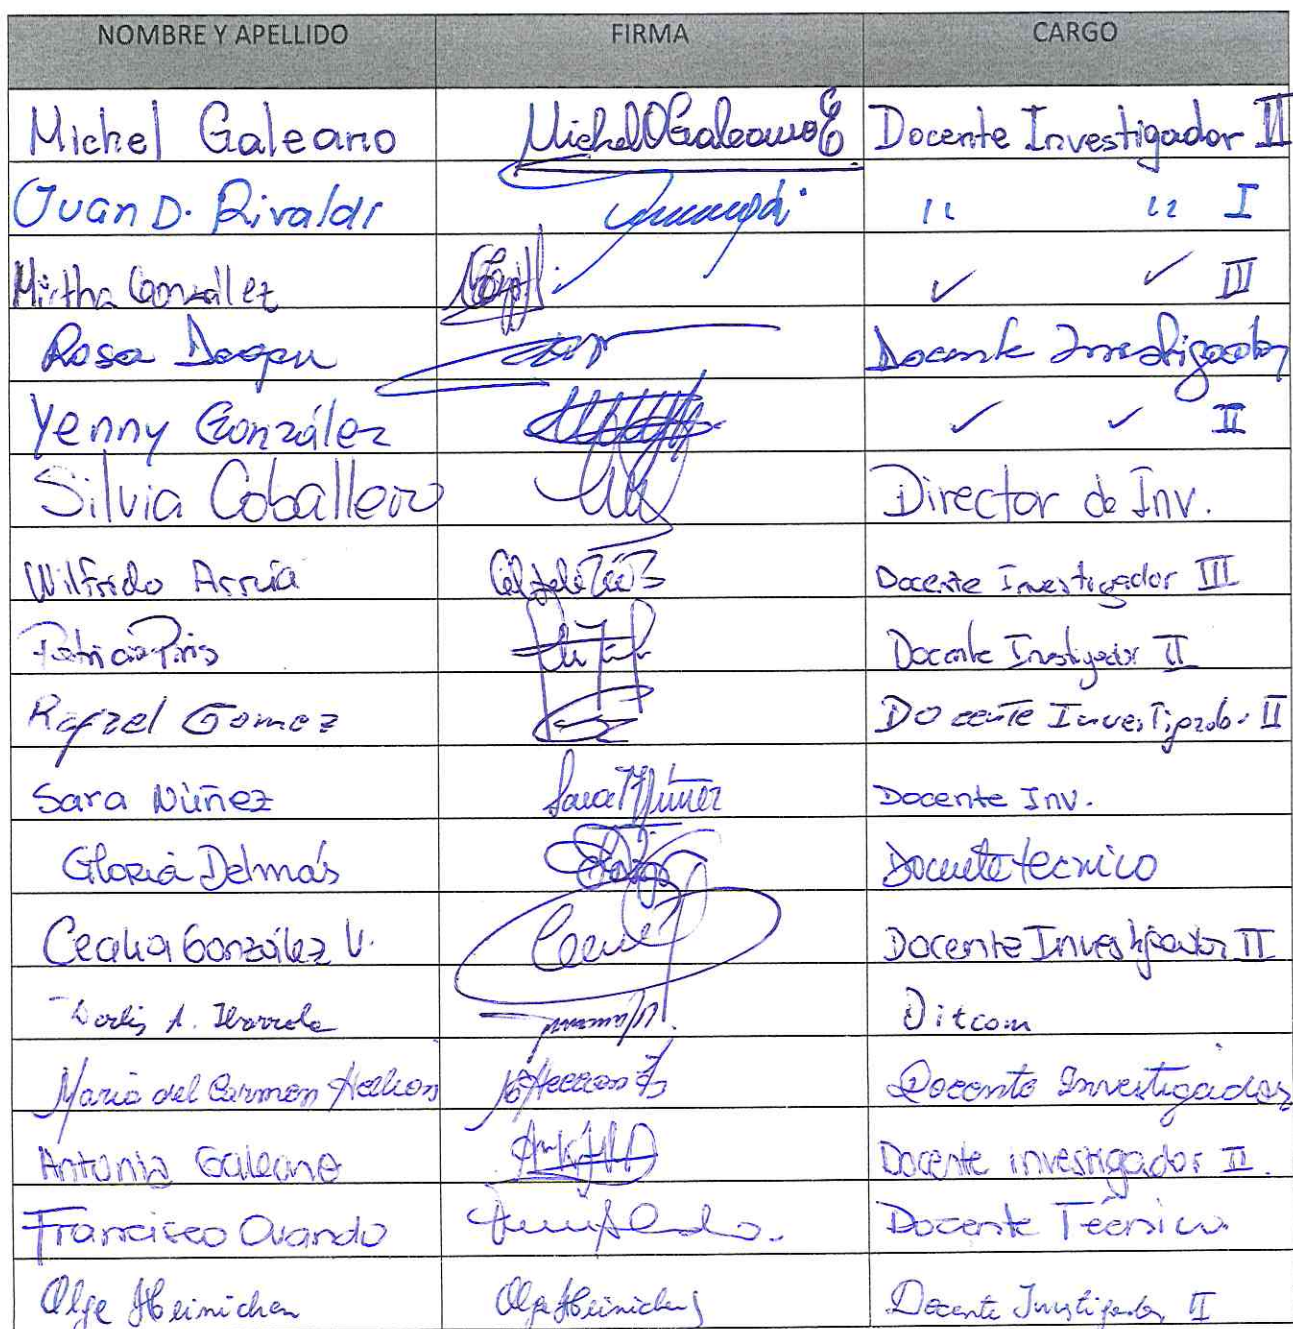 NOMBRE Y APELLIDO FIRMA CARGO
Michel Galeano Michel O Galeano E Docente Investigador II
Juan D. Rivaldi " " I
Mirtha González ✓ ✓ III
Rosa Docente Investigador
Yenny González ✓ ✓ II
Silvia Caballero Director de Inv.
Wilfrido Arrúa Docente Investigador III
Patricia Piris Docente Investigador II
Rafael Gomez Docente Investigador II
Sara Núñez Sara Núñez Docente Inv.
Gloria Delmás Docente técnico
Cecilia González V. Docente Investigador II
A. Ibarrola Ditcom
Maria del Carmen Docente Investigador
Antonia Galeano Docente investigador II.
Francisco Ovando Docente Técnico
Olga Heinichen Olga Heinichen Docente Investigador II